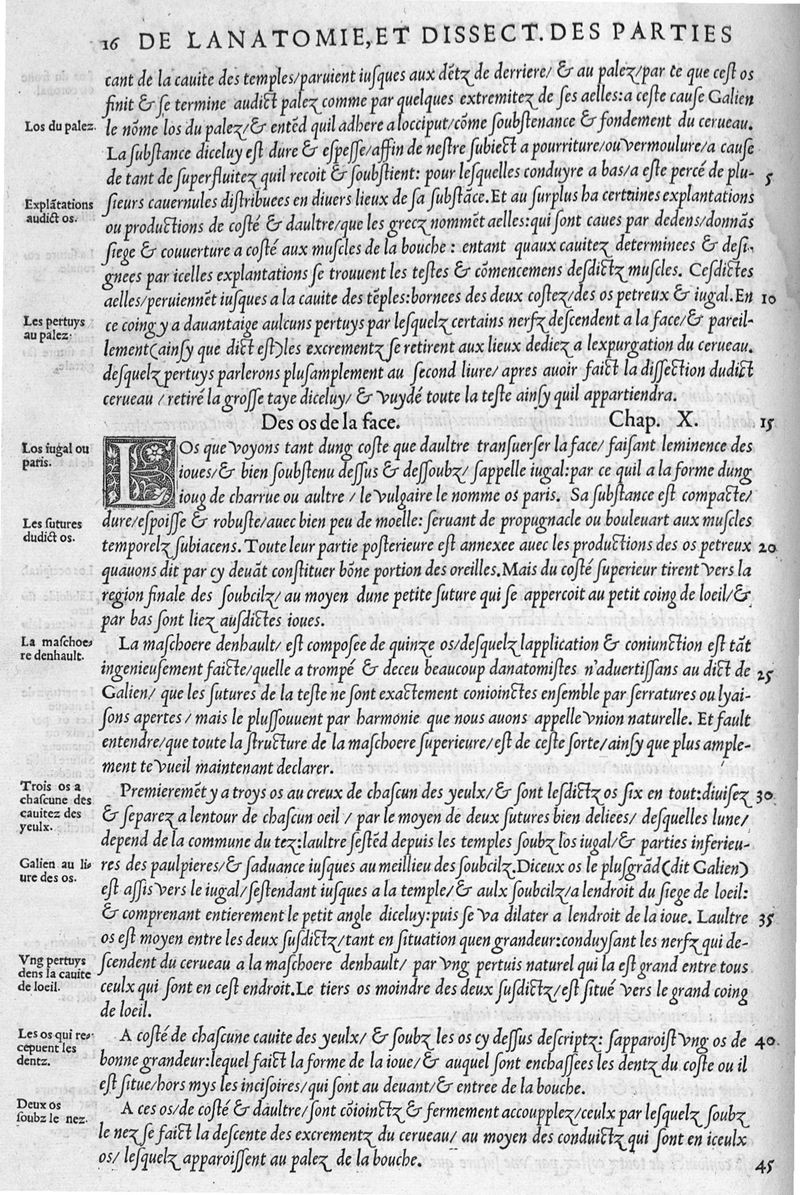 16 DE LANATOMIE, ET DISSECT. DES PARTIES
cant de la cauite des temples/paruient iusques aux dẽtz de derriere/ & au palez/par ce que cest os
finit & se termine audict palez comme par quelques extremitez de ses aelles:a ceste cause Galien
Los du palez. le nõme los du palez/& entẽd quil adhere a locciput/cõme soubstenance & fondement du cerueau.
La substance diceluy est dure & espesse/affin de nestre subiect a pourriture/ou vermoulure/a cause
de tant de superfluitez quil recoit & soubstient: pour lesquelles conduyre a bas/a este percé de plu- 5
Explãtations audict os. sieurs cauernules distribuees en diuers lieux de sa substãce.Et au surplus ha certaines explantations
ou productions de costé & daultre/que les grecz nommẽt aelles:qui sont caues par dedens/donnãs
siege & couuerture a costé aux muscles de la bouche : entant quaux cauitez determinees & desi-
gnees par icelles explantations se trouuent les testes & cõmencemens desdictz muscles. Cesdictes
aelles/peruiennẽt iusques a la cauite des tẽples:bornees des deux costez/des os petreux & iugal.En 10
Les pertuys au palez. ce coing y a dauantaige aulcuns pertuys par lesquelz certains nerfz descendent a la face/& pareil-
lement(ainsy que dict est)les excrementz se retirent aux lieux dediez a lexpurgation du cerueau.
desquelz pertuys parlerons plusamplement au second liure/ apres auoir faict la dissection dudict
cerueau / retiré la grosse taye diceluy/ & vuydé toute la teste ainsy quil appartiendra.
Des os de la face. Chap. X. 15
Los iugal ou paris. LOs que voyons tant dung coste que daultre transuerser la face/ faisant leminence des
ioues/& bien soubstenu dessus & dessoubz/ sappelle iugal:par ce quil a la forme dung
ioug de charrue ou aultre / le vulgaire le nomme os paris. Sa substance est compacte/
Les sutures dudict os. dure/espoisse & robuste/auec bien peu de moelle: seruant de propugnacle ou bouleuart aux muscles
temporelz subiacens. Toute leur partie posterieure est annexee auec les productions des os petreux 20
quauons dit par cy deuãt constituer bõne portion des oreilles.Mais du costé superieur tirent vers la
region finale des soubcilz/ au moyen dune petite suture qui se appercoit au petit coing de loeil/&
par bas sont liez ausdictes ioues.
La maschoere denhault. La maschoere denhault/ est composee de quinze os/desquelz lapplication & coniunction est tãt
ingenieusement faicte/quelle a trompé & deceu beaucoup danatomistes n'advertissans au dict de 25
Galien/ que les sutures de la teste ne sont exactement conioinctes ensemble par serratures ou lyai-
sons apertes / mais le plussouuent par harmonie que nous auons appelle vnion naturelle. Et fault
entendre/que toute la structure de la maschoere superieure/est de ceste sorte/ainsy que plus ample-
ment te vueil maintenant declarer.
Trois os a chascune des cauitez des yeulx. Premieremẽt y a troys os au creux de chascun des yeulx/& sont lesdictz os six en tout:diuisez 30
& separez a lentour de chascun oeil / par le moyen de deux sutures bien deliees/ desquelles lune/
depend de la commune du tez:laultre sestẽd depuis les temples soubz los iugal/& parties inferieu-
Galien au liure des os. res des paulpieres/& saduance iusques au meillieu des soubcilz.Diceux os le plusgrãd(dit Galien)
est assis vers le iugal/sestendant iusques a la temple/& aulx soubcilz/a lendroit du siege de loeil:
& comprenant entierement le petit angle diceluy:puis se va dilater a lendroit de la ioue. Laultre 35
os est moyen entre les deux susdictz/tant en situation quen grandeur:conduysant les nerfz qui de-
Vng pertuys dens la cauite de loeil. scendent du cerueau a la maschoere denhault/ par vng pertuis naturel qui la est grand entre tous
ceulx qui sont en cest endroit.Le tiers os moindre des deux susdictz/est situé vers le grand coing
de loeil.
Les os qui recepuent les dentz. A costé de chascune cauite des yeulx/ & soubz les os cy dessus descriptz: sapparoist vng os de 40
bonne grandeur:lequel faict la forme de la ioue/& auquel sont enchassees les dentz du coste ou il
est situe/hors mys les incisoires/qui sont au deuant/& entree de la bouche.
Deux os soubz le nez. A ces os/de costé & daultre/sont cõioinctz & fermement accoupplez/ceulx par lesquelz soubz
le nez se faict la descente des excrementz du cerueau/ au moyen des conduictz qui sont en iceulx
os/ lesquelz apparoissent au palez de la bouche. 45